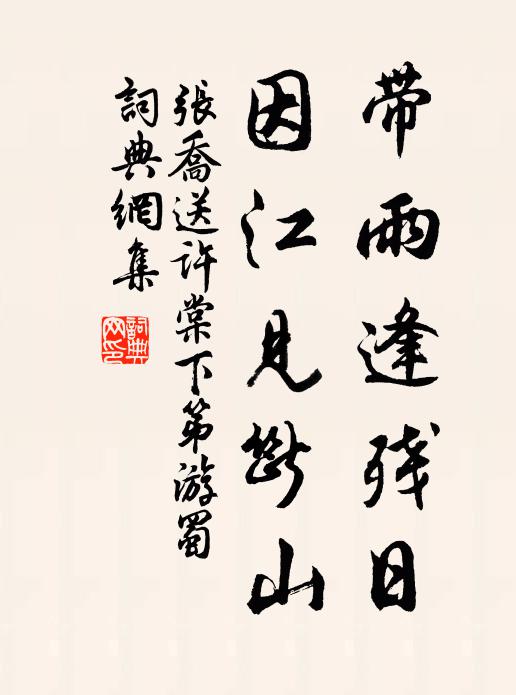 带雨逢残日
因江见断山
張喬送许棠下第游蜀
詞典網集
詞典网印